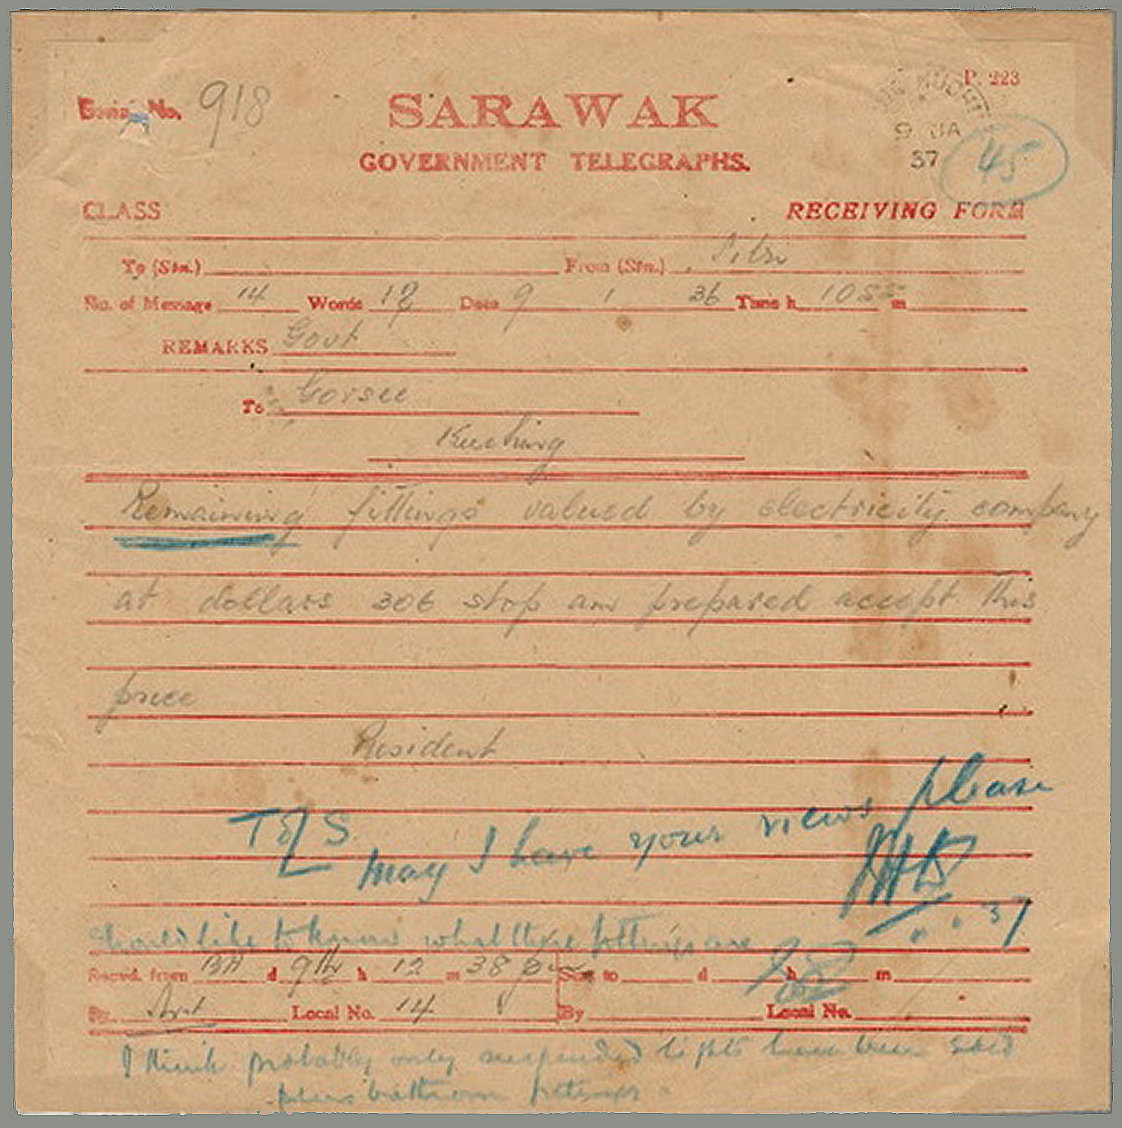 P. 223
Serial No. 918
SARAWAK
GOVERNMENT TELEGRAPHS.
9 JA
37
45
CLASS RECEIVING FORM
To (Stn.) From (Stn.) Sibu
No. of Message 14 Words 18 Date 9 1 36 Time h. 1055 m
REMARKS Govt
To Gorsec
Kuching
Remaining fittings valued by electricity company
at dollars 306 stop am prepared accept this
price
Resident
may I have your views please
37
Should like to know what these fittings are
Recvd. from d 9th h 12 m 38 pm Sent to d h m
By Local No. 14 By Local No.
I think probably only suspended lights have been sold
plus bathroom fittings